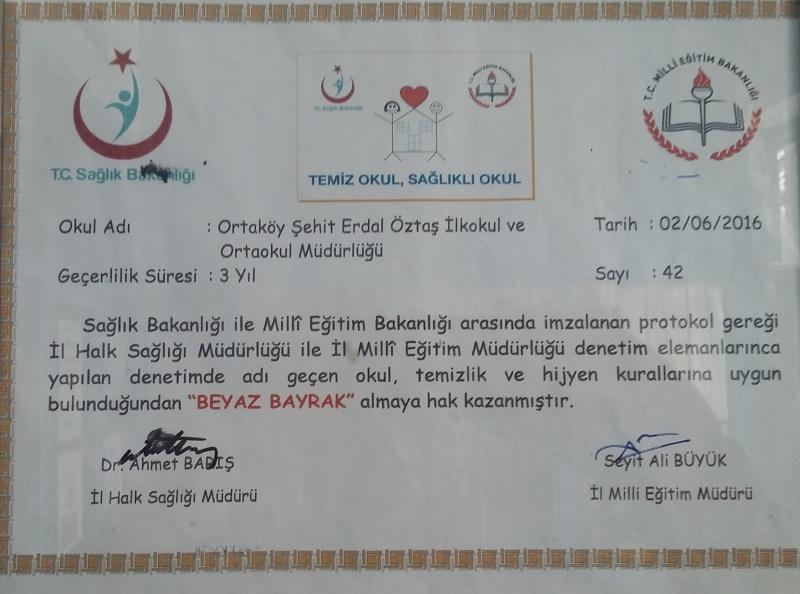 T.C. Sağlık Bakanlığı
T.C. Sağlık Bakanlığı
T.C. MİLLİ EĞİTİM BAKANLIĞI
TEMİZ OKUL, SAĞLIKLI OKUL
T.C. MİLLİ EĞİTİM BAKANLIĞI
Okul Adı : Ortaköy Şehit Erdal Öztaş İlkokul ve Tarih : 02/06/2016
Ortaokul Müdürlüğü
Geçerlilik Süresi : 3 Yıl Sayı : 42
Sağlık Bakanlığı ile Millî Eğitim Bakanlığı arasında imzalanan protokol gereği
İl Halk Sağlığı Müdürlüğü ile İl Millî Eğitim Müdürlüğü denetim elemanlarınca
yapılan denetimde adı geçen okul, temizlik ve hijyen kurallarına uygun
bulunduğundan “BEYAZ BAYRAK” almaya hak kazanmıştır.
Dr. Ahmet BADIŞ Seyit Ali BÜYÜK
İl Halk Sağlığı Müdürü İl Milli Eğitim Müdürü